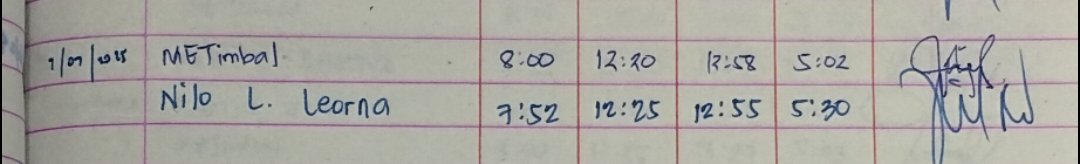 METimbal 8:00 12:20 12:58 5:02
Nilo L. Leorna 7:52 12:25 12:55 5:30